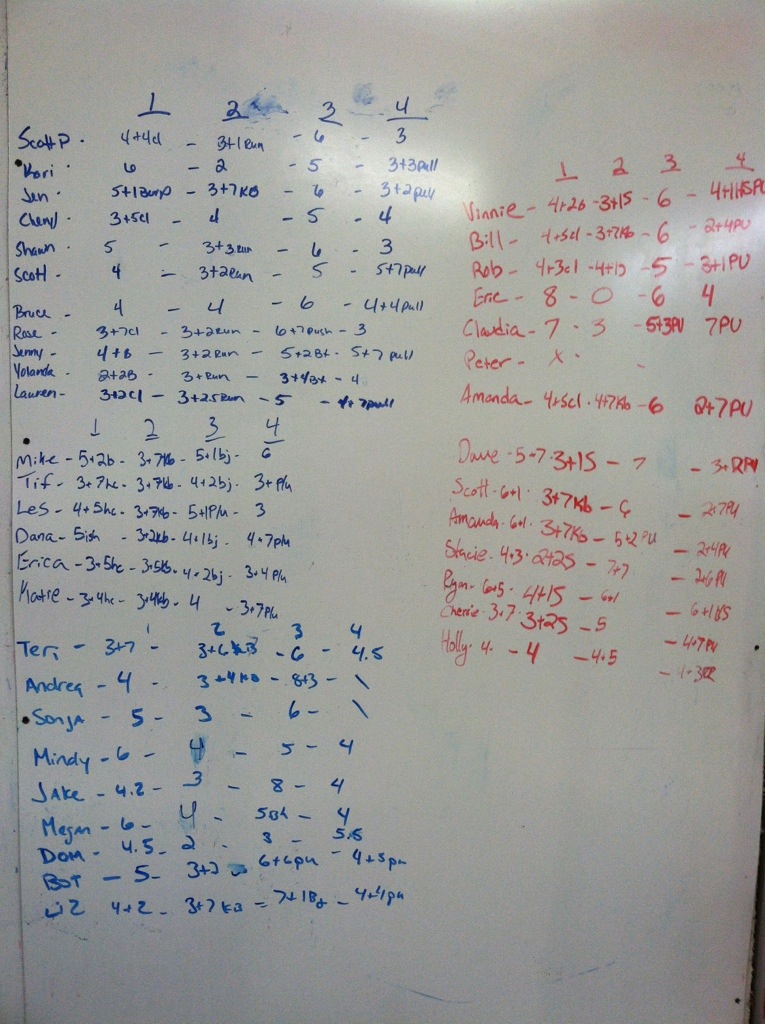 1 2 3 4
Scott P. 4+4cl - 3+1Run - 6 - 3
Kori 6 - 2 - 5 - 3+3pull
Jen 5+1Burp - 3+7KB - 6 - 3+2pull
Cheryl 3+5cl - 4 - 5 - 4
Shawn 5 - 3+3Run - 6 - 3
Scott - 4 - 3+2Run - 5 - 5+7pull
Bruce - 4 - 4 - 6 - 4+4pull
Rose - 3+7cl - 3+2Run - 6+7push - 3
Jenny - 4+B - 3+2Run - 5+2Bt - 5+7pull
Yolanda 2+2B - 3+Run - 3+4Bt - 4
Lauren - 3+2cl - 3+2.5Run - 5 - 4+7pull
1 2 3 4
Mike - 5+2b - 3+7kb - 5+1bj - 6
Tif - 3+7hc - 3+7kb - 4+2bj - 3+p/u
Les - 4+5hc - 3+7kb - 5+1P/u - 3
Dana - 5ish - 3+2kb - 4+1bj - 4+7p/u
Erica - 3+5hc - 3+5kb - 4+2bj - 3+4P/u
Katie - 3+4hc - 3+4kb - 4 - 3+7P/u
1 2 3 4
Teri - 3+7 - 3+6KB - 6 - 4.5
Andrea - 4 - 3+4KB - 8+3 - \
Sonja - 5 - 3 - 6 - \
Mindy - 6 - 4 - 5 - 4
Jake - 4.2 - 3 - 8 - 4
Megan - 6 - 4 - 4
Dom - 4.5 - 2 - 3 - 5.5
BOT - 5 - 3+2 - 6+6pu - 4+3pu
4+2 - 3+7KB - 7+1Bt - 4+4pu
1 2 3 4
Vinnie - 4+2b - 3+15 - 6 - 4+1HSPU
Bill - 4+5cl - 3+7kb - 6 - 2+4PU
Rob - 4+3cl - 4+15 - 5 - 3+1PU
Eric - 8 - 0 - 6 4
Claudia - 7 - 3 - 5+3PU 7PU
Peter - X -
Amanda - 4+5cl - 4+7Kb - 6 2+7PU
Dave - 5+7 - 3+15 - 7 - 3+RPU
Scott - 6+1 - 3+7Kb - 6 - 2+7PU
Amanda - 6+1 - 3+7Kb - 5+2PU - 2+4PU
Stacie - 4+3 - 2+25 - 7+7 - 2+6PU
Ryan - 6+5 - 4+15 - 6+1 - 6+1BS
Cherie - 3+7 - 3+25 - 5 - 4+7PU
Holly - 4 - 4 - 4+5 - 4+3RR